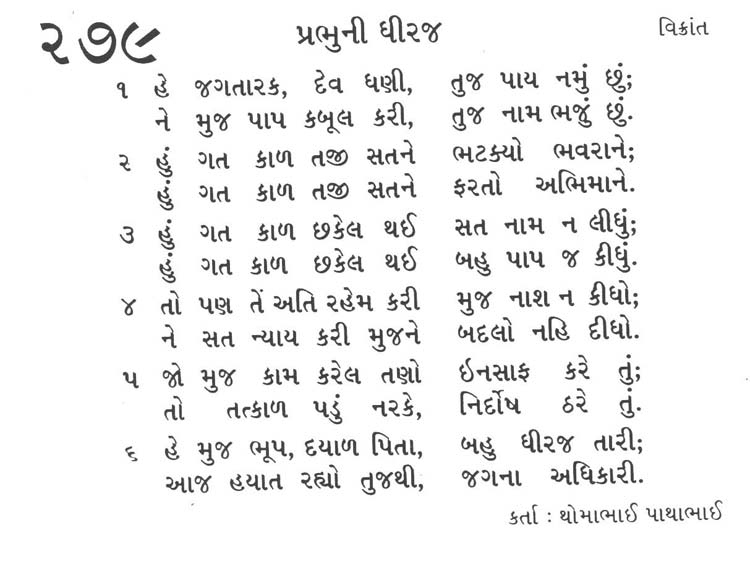 ૨૭૯ પ્રભુની ધીરજ વિક્રાંત
૧ હે જગતારક, દેવ ધણી, તુજ પાય નમું છું;
ને મુજ પાપ કબૂલ કરી, તુજ નામ ભજું છું.
૨ હું ગત કાળ તજી સતને ભટક્યો ભવરાને;
હું ગત કાળ તજી સતને ફરતો અભિમાને.
૩ હું ગત કાળ છકેલ થઈ સત નામ ન લીધું;
હું ગત કાળ છકેલ થઈ બહુ પાપ જ કીધું.
૪ તો પણ તેં અતિ રહેમ કરી મુજ નાશ ન કીધો;
ને સત ન્યાય કરી મુજને બદલો નહિ દીધો.
૫ જો મુજ કામ કરેલ તણો ઇનસાફ કરે તું;
તો તત્કાળ પડું નરકે, નિર્દોષ ઠરે તું.
૬ હે મુજ ભૂપ, દયાળ પિતા, બહુ ધીરજ તારી;
આજ હયાત રહ્યો તુજથી, જગના અધિકારી.
કર્તા : થોમાભાઈ પાથાભાઈ